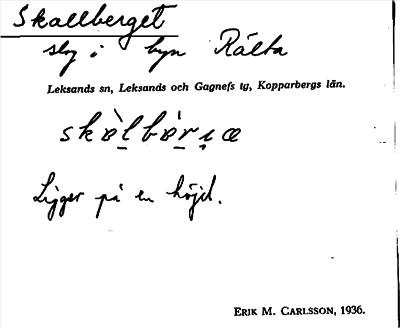 Skallberget
slog i byn Rälta
Leksands sn, Leksands och Gagnefs tg, Kopparbergs län.
Ligger på en höjd.
ERIK M. CARLSSON, 1936.